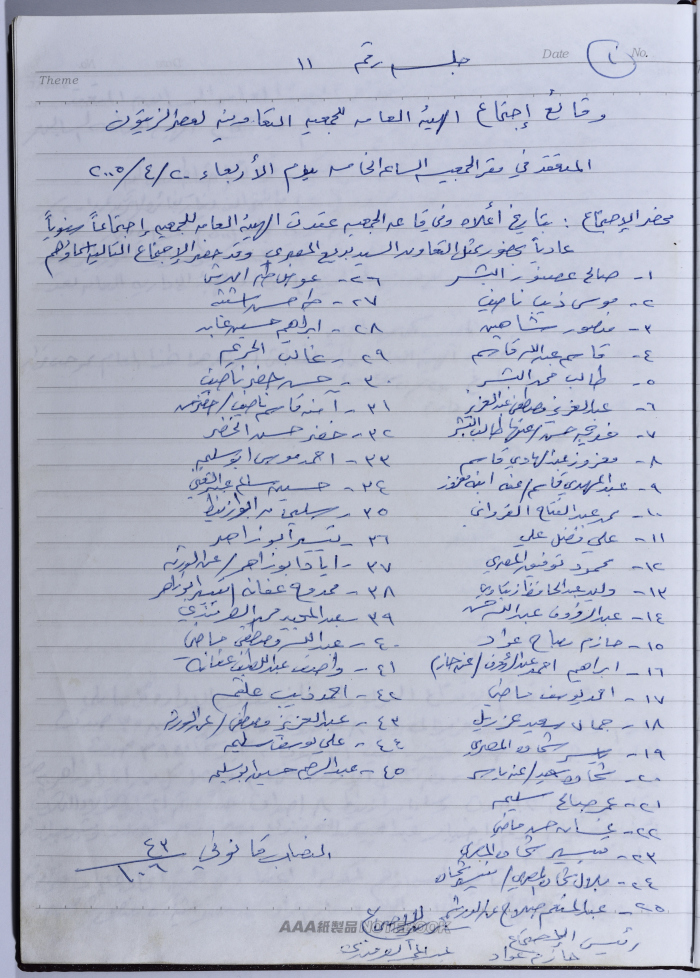 Theme
Date
No.
١
جلسه رقم ١١
وقائع إجتماع الهيئة العامه للجمعيه التعاونيه لعصر الزيتون
المنعقد في مقر الجمعيه الساعه الخامسه يوم الأربعاء ٢٠٠٥/٤/٢٠
محضر الإجتماع : بتاريخ أعلاه وفي قاعه الجمعيه عقدت الهيئة العامه للجمعيه إجتماعاً سنوياً
عادياً بحضور ممثل التعاون السيد بديع المصري وقد حضر الإجتماع التاليه اسماؤهم
١- صالح عصفور البشر
٢- موسى ذيب ناصيف
٣- منصور شاهين
٤- قاسم عبدالله قاسم
٥- طالب محمد البشر
٦- عبدالعزيز مصطفى عبدالعزيز
٧- فوزيه حسن / عنها طالب البشر
٨- معزوز عبدالهادي قاسم
٩- عبدالمهدي قاسم / عنه ابنه معزوز
١٠- محمد عبدالفتاح القرواني
١١- علي فضل علي
١٢- محمود توفيق المصري
١٣- وليد عبدالحافظ زيادي
١٤- عبدالرؤوف عبدالله حسن
١٥- حازم صلاح عواد
١٦- ابراهيم احمد عبدالرؤوف (عن حازم)
١٧- احمد يوسف ماضي
١٨- جمال سعيد عزريل
١٩- ياسر شحاده المصري
٢٠- شحاده سعيد / عنه ياسر
٢١- عمر صالح سليم
٢٢- غسان حمد ماضي
٢٣- تيسير شحاده المصري
٢٤- بلال شحاده المصري / تيسير شحاده
٢٥- عبدالمنعم صلاح عن الورثه
٢٦- عوض طه
٢٧- طه حسن
٢٨- ابراهيم حسين عابد
٢٩- غالب
٣٠- حسن خضر ناصيف
٣١- آمنه قاسم ناصيف /
٣٢- خضر حسن الخضر
٣٣- احمد موسى ابوسليمه
٣٤- حسين سالم
٣٥- سليمان
٣٦- تيسير ابو زاهر
٣٧- اياد ابو زاهر / عن الورثه
٣٨- ممدوح عفانه / تيسير ابوزاهر
٣٩- عبدالمجيد محمد
٤٠- عبدالله مصطفى ماضي
٤١- واصف عبداللطيف عفانه
٤٢- احمد ذيب علقم
٤٣- عبدالعزيز مصطفى / عن الورثه
٤٤- علي يوسف سليمه
٤٥- عبدالرحيم حسين ابوسليمه
النصاب قانوني ٤٣
١٠٦
رئيس الإجتماع
حازم عواد
AAA紙製品 NOTEBOOK